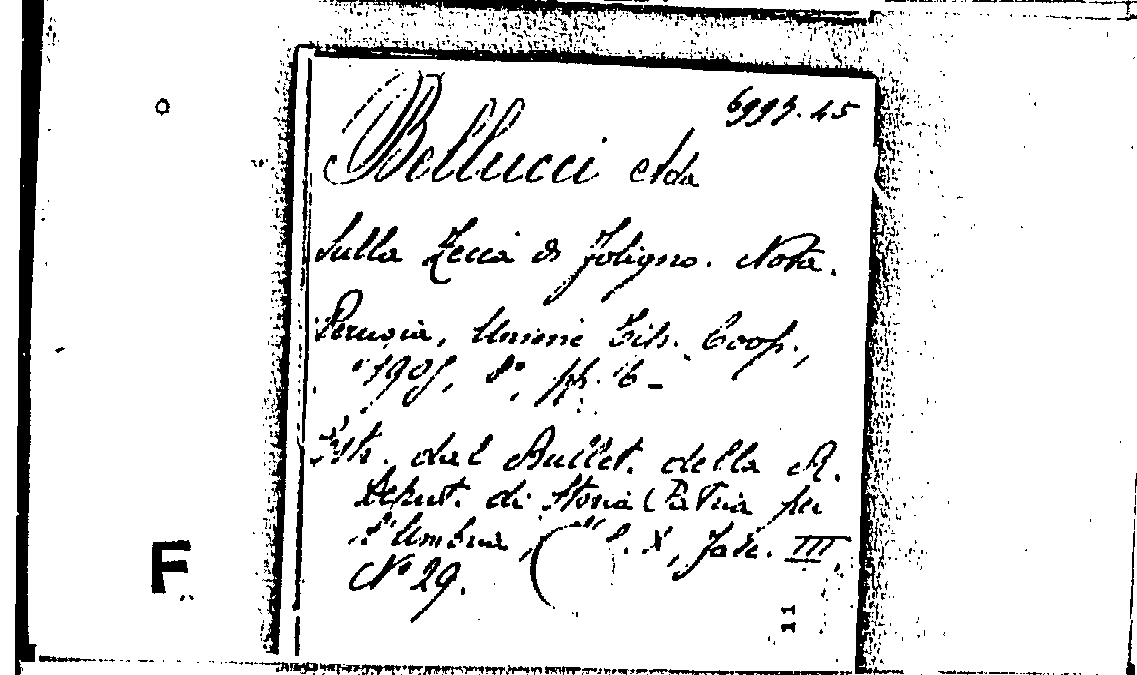 6993.45
Bellucci Ada
Sulla Zecca di Foligno. Nota.
Perugia, Unione Tip. Coop.,
1905, 8°, pp. 6 -
Estr. dal Bullet. della R.
Deput. di Storia Patria per
l'Umbria, X, Fasc. III,
N° 29.
F
11